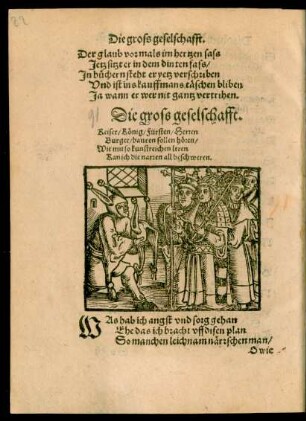 Die gross geselschafft.
Der glaub vormals im hertzen sass
Jetz sitzt er in dem dinten fass/
In büchern steht er yetz verschriben
Und ist ins kauffmans täschen bliben
Ja wann er wer nit gantz vertriben.
Die gross geselschafft.
Kaiser/ König/ Fürsten/ Herren
Burger/ bauren sollen hören/
Wie mit so kunstreichen leren
Kan ich die narren all beschweren.
WAs hab ich angst vnd sorg gehan
Ehe das ich bracht vff disen plan
So manchen leichnam närrschen man/
O wie